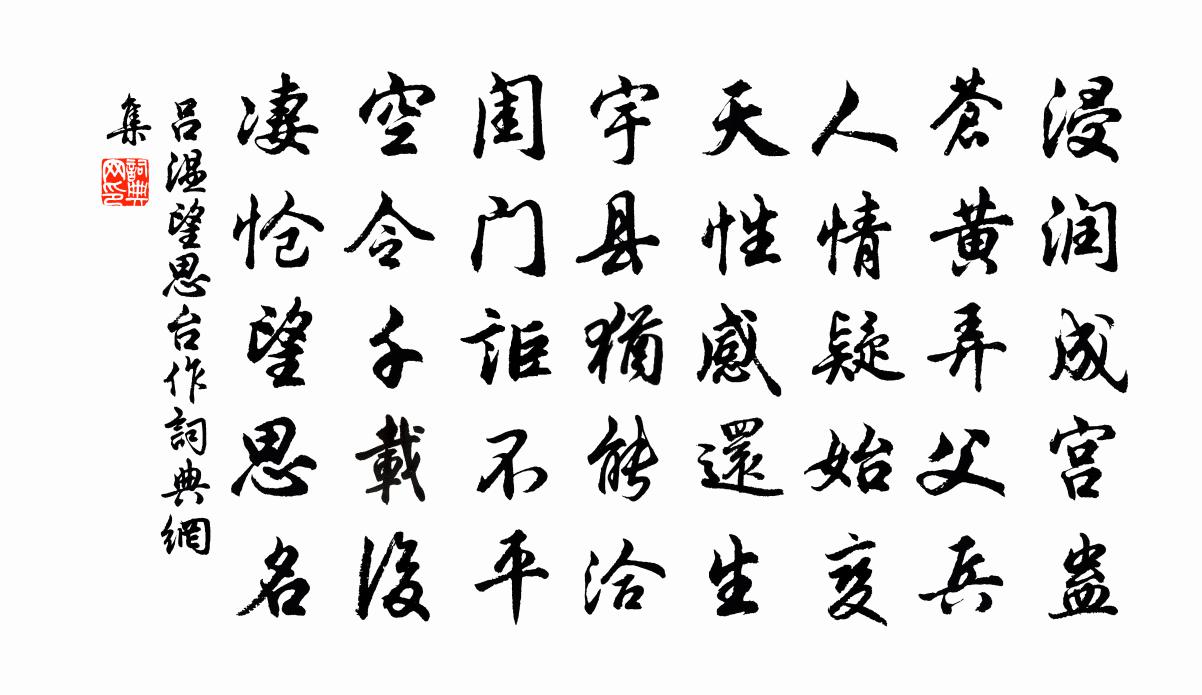 浸润成宫蛊
苍黄弄父兵
人情疑始变
天性感還生
宇县猶能洽
闺门詎不平
空令千載後
凄怆望思名
吕温望思台作詞典網
集
詞典
网印